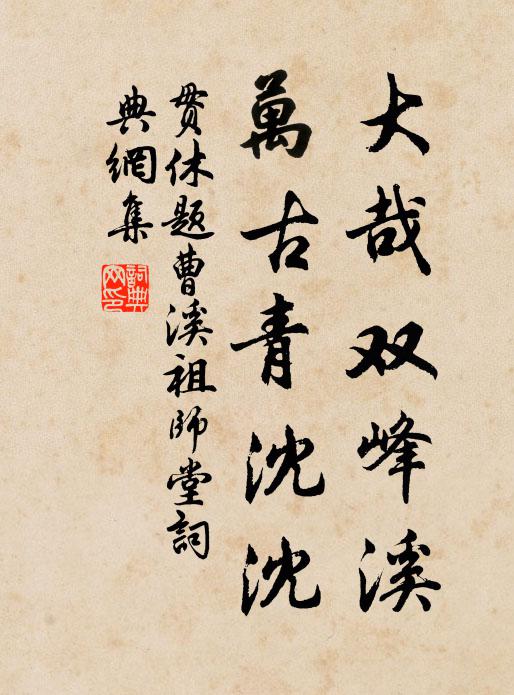 大哉双峰溪
萬古青沈沈
贯休題曹溪祖師堂詞
典網集
詞典网印